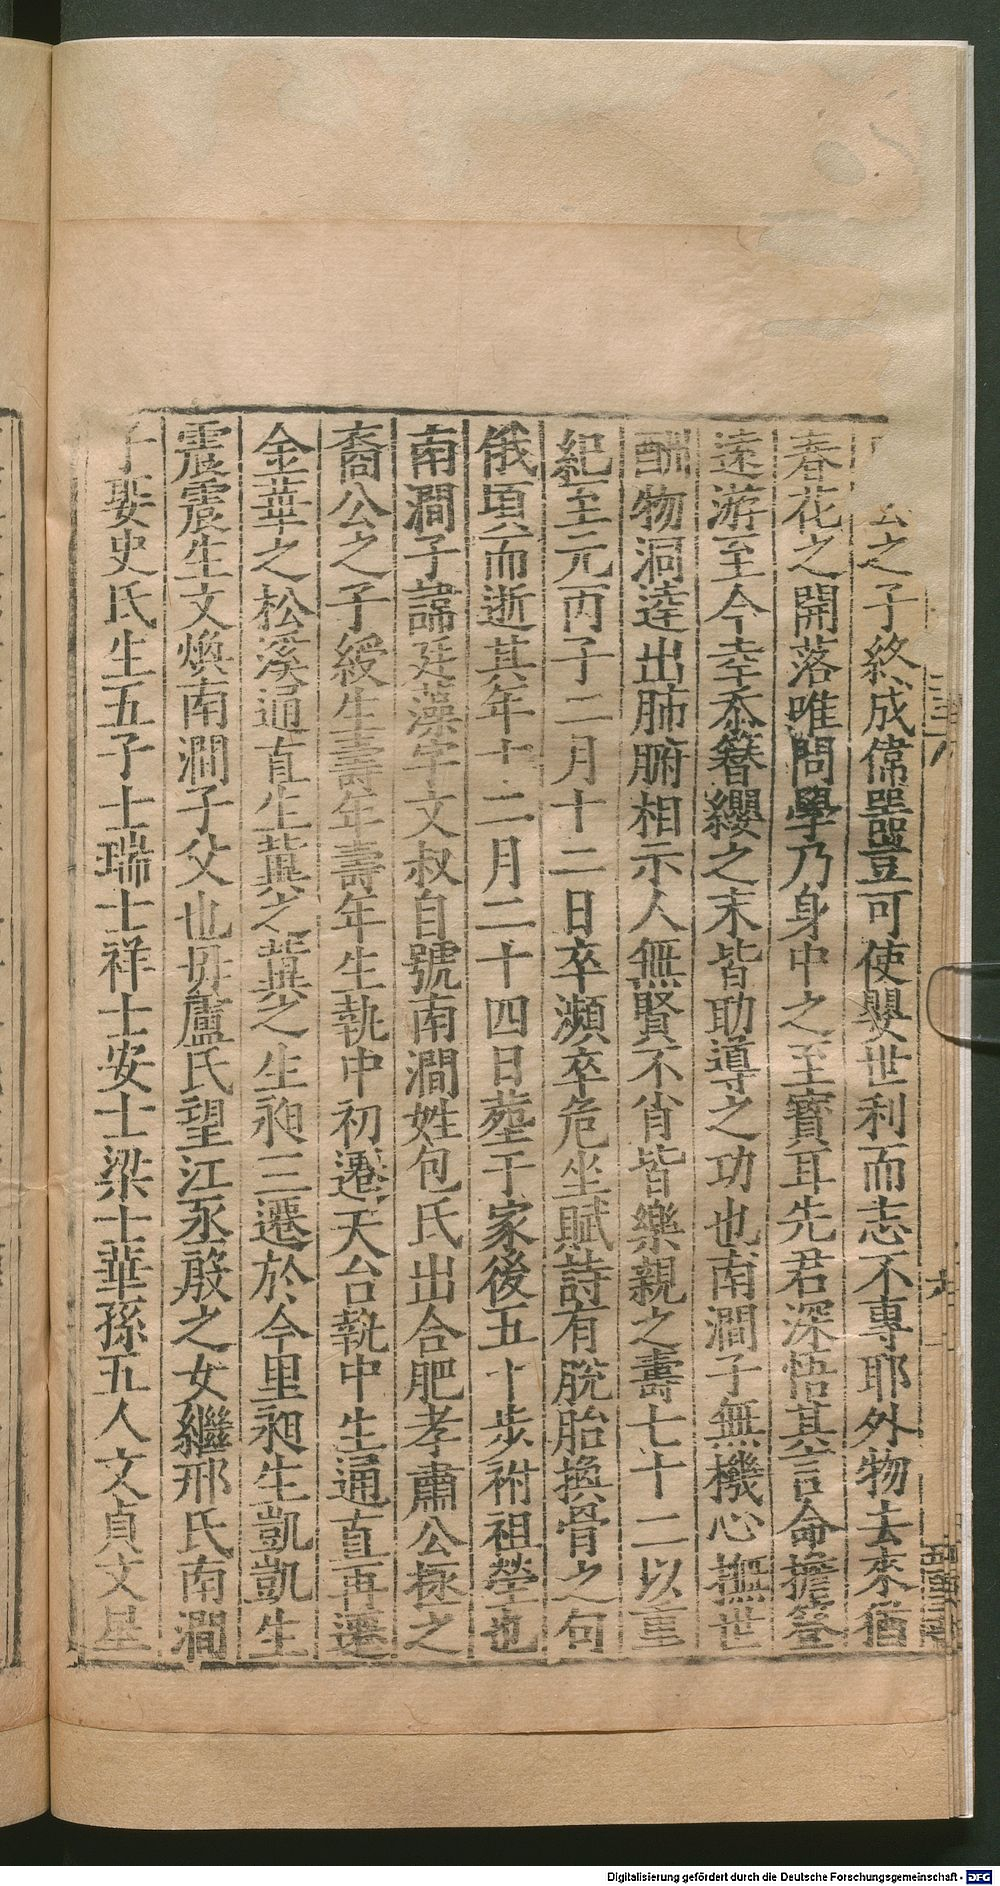 之子終成偉器豈可使嬰世利而志不專耶外物去來猶
春花之開落唯問學乃身中之至寳耳先君深悟其言命擔簦
遠游至今幸忝簪纓之末皆助導之功也南澗子無機心撫世
酬物洞逹出肺腑相示人無賢不肖皆樂親之壽七十二以重
紀至元丙子二月十二日卒瀕卒危坐賦詩有脫胎換骨之句
俄頃而逝其年十二月二十四日塟于家後五十步祔祖塋也
南澗子諱廷藻字文叔自號南澗姓包氏出合肥孝肅公拯之
裔公之子綬生壽年壽年生執中初遷天台執中生通直再遷
金華之松溪通直生冀之冀之生昶三遷於今里昶生凱凱生
震震生文煥南澗子父也毋盧氏望江丞殷之女繼邢氏南澗
子娶史氏生五子士瑞士祥士安士梁士華孫五人文貞文星
Digitalisierung gefördert durch die Deutsche Forschungsgemeinschaft - DFG